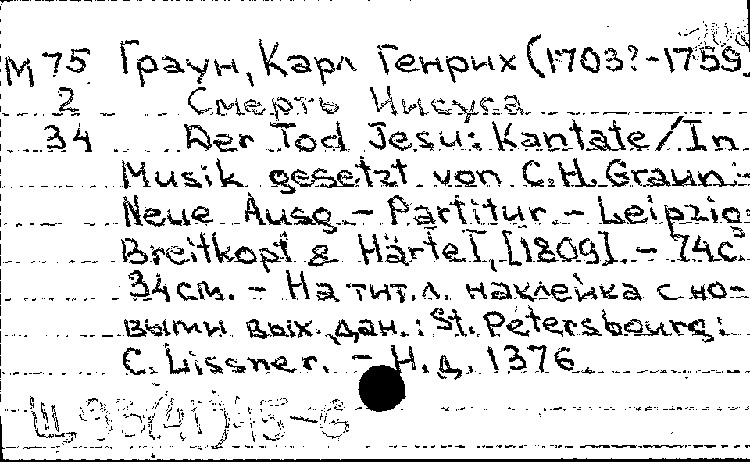 М 75 Граун, Карл Генрих (1703?-1759)
2 Смерть Иисуса
34 Der Tod Jesu: Kantate / In
Musik gesetzt von C.H. Graun.-
Neue Ausg. - Partitur. - Leipzig:
Breitkopf & Härtel, [1809]. - 74 с.
34 см. - На тит.л. наклейка с но-
выми вых. дан.: St. Petersbourg:
C. Lissner. - Н.д. 1376
Щ 93(4Г)45-6